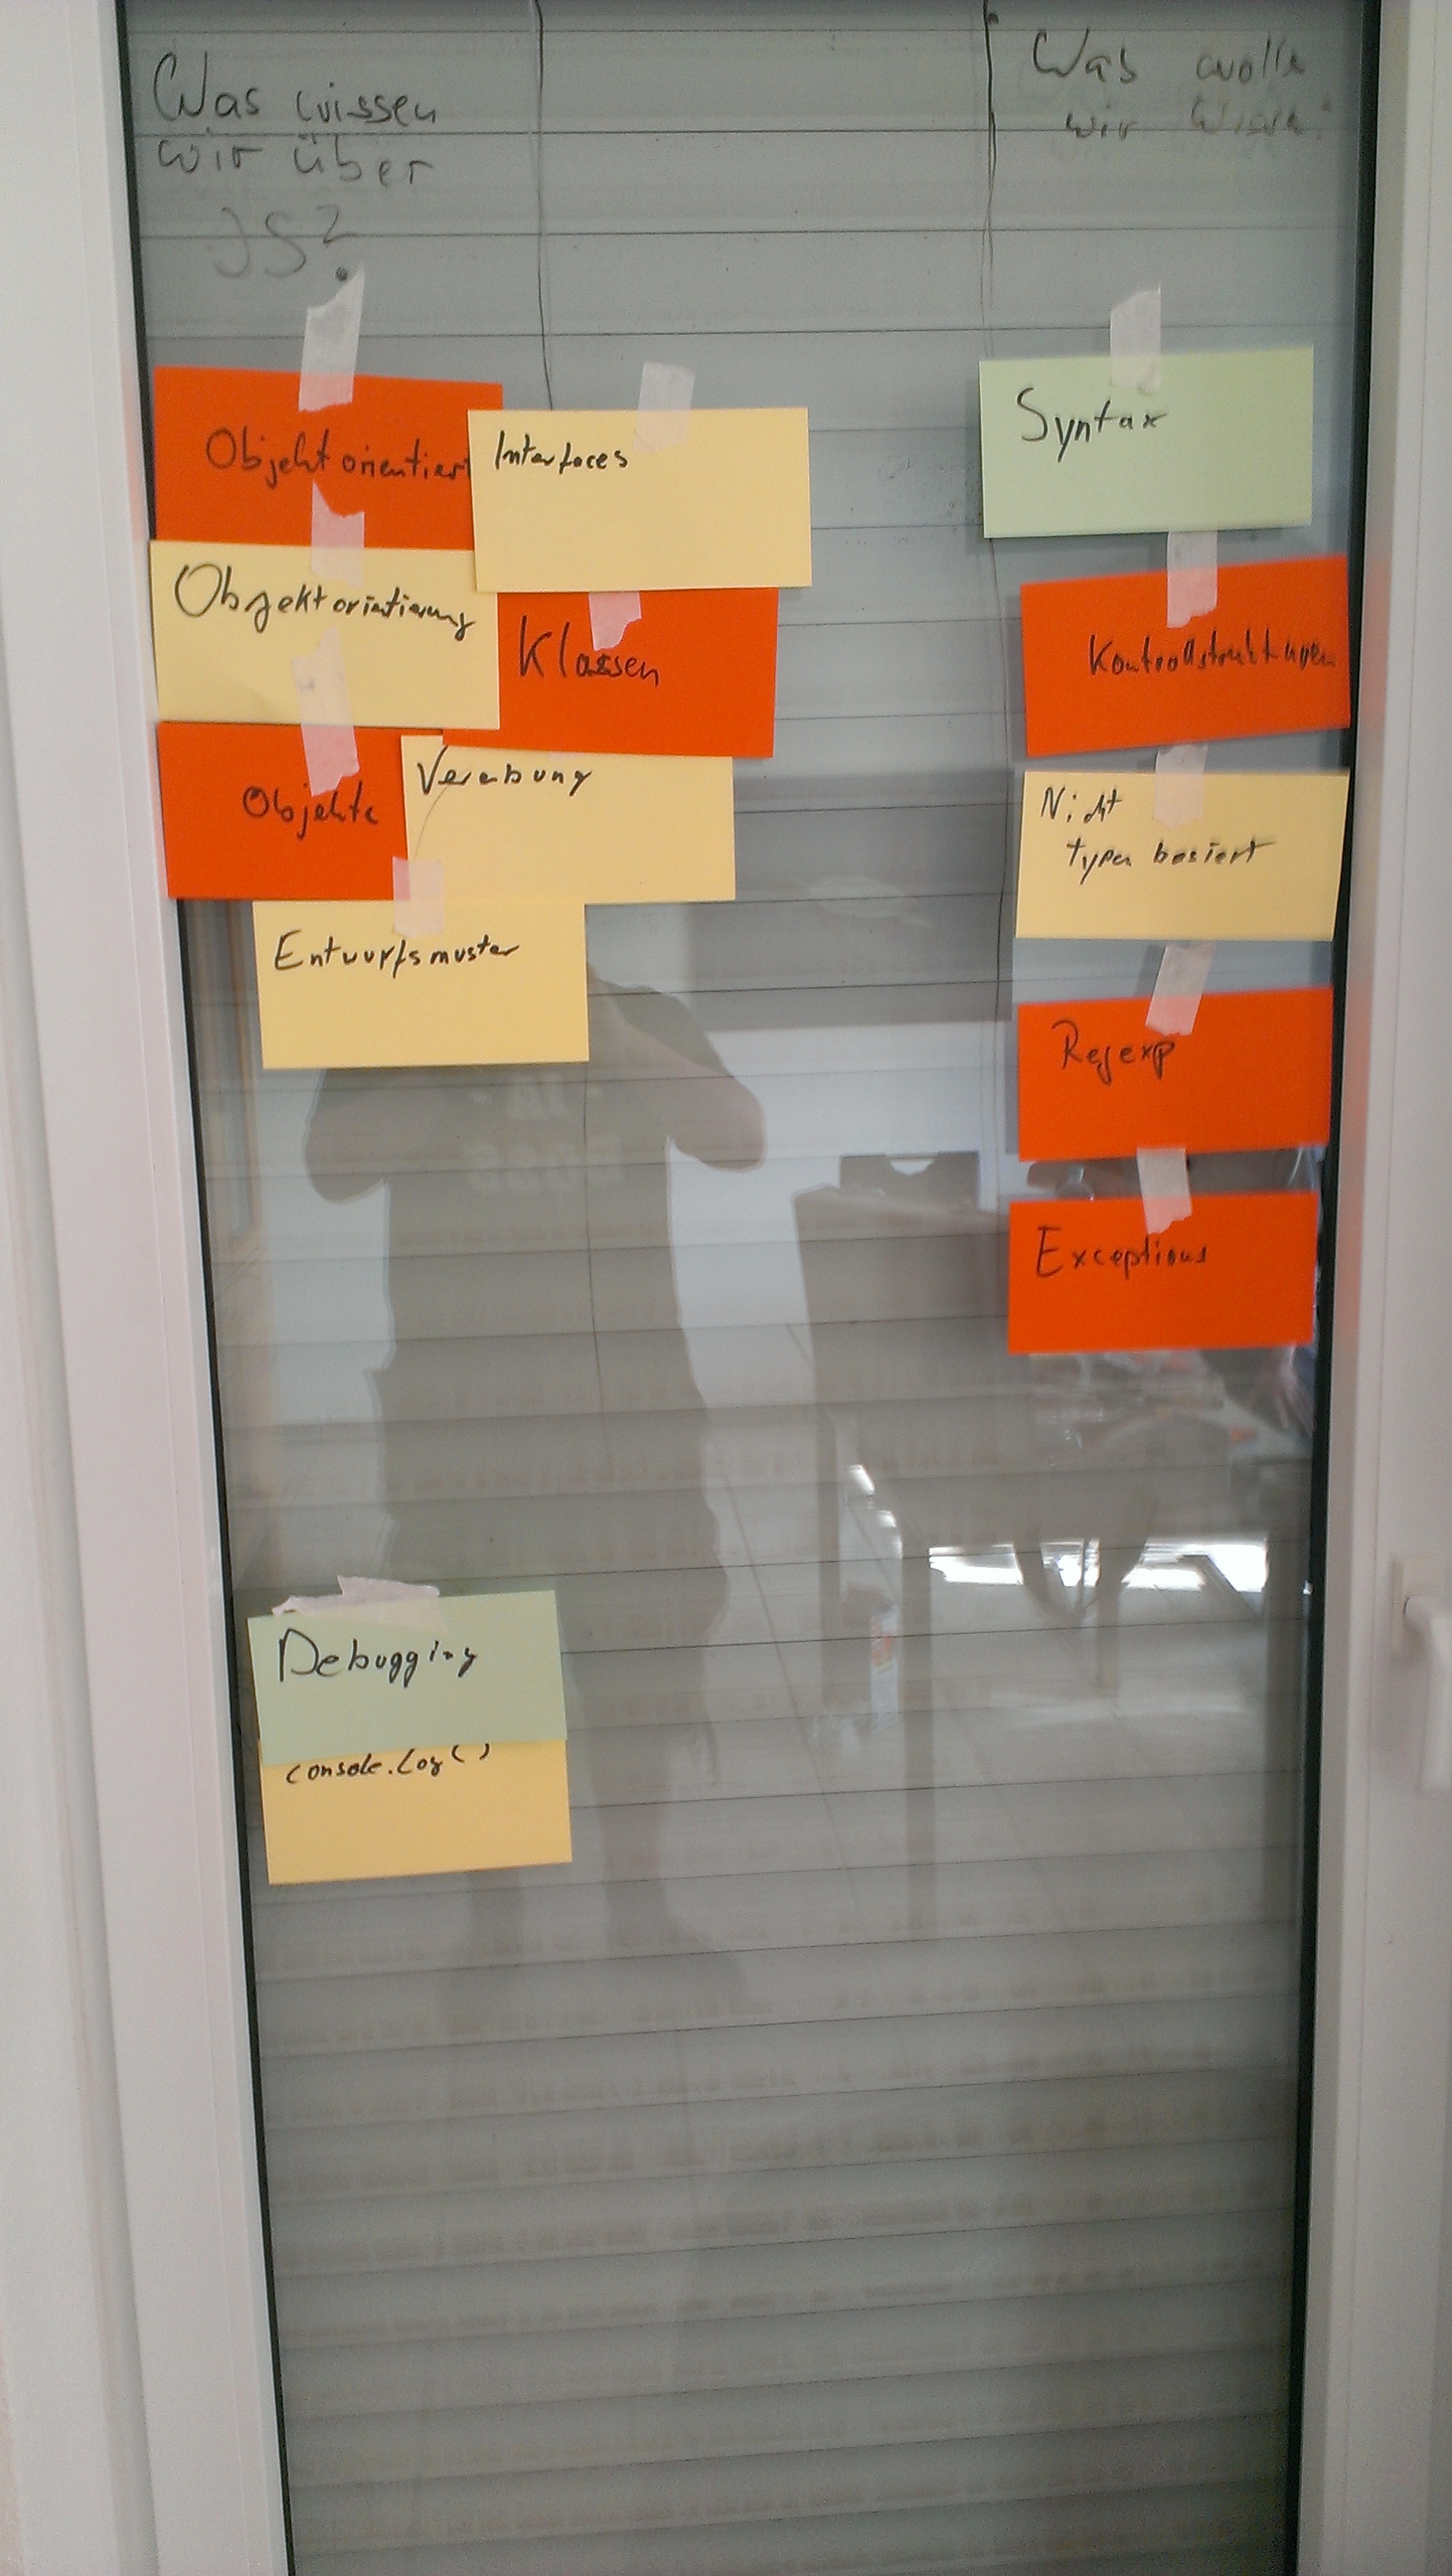 Was wissen
wir über
JS?
Was wolle
wir
Objektorientiert
Interfaces
Objektorientierung
Klassen
Objekte
Vererbung
Entwurfsmuster
Debugging
console.log()
Syntax
Kontrollstrukturen
Nicht
typen basiert
Regexp
Exceptions